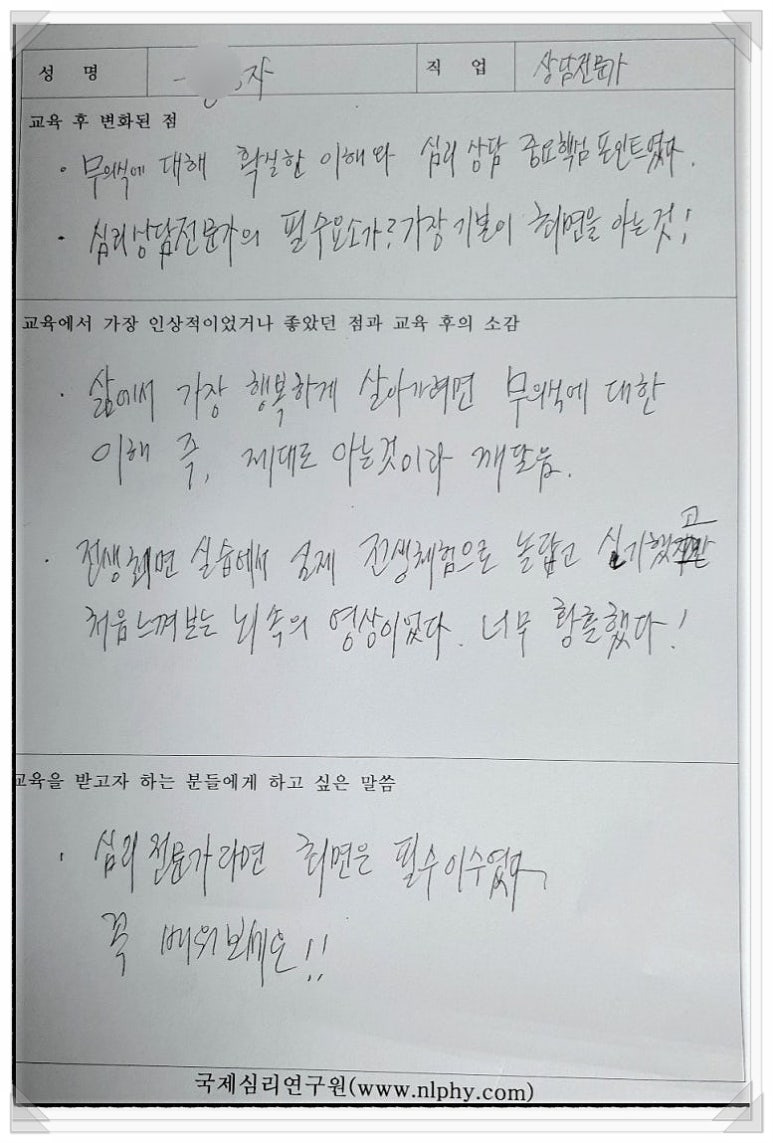 성 명 자 직 업 상담전문가
교육 후 변화된 점
· 무의식에 대해 확실한 이해와 심리 상담 중요핵심 포인트였다.
· 심리상담전문가의 필수요소가? 가장 기본이 최면을 아는것!
교육에서 가장 인상적이었거나 좋았던 점과 교육 후의 소감
· 삶에서 가장 행복하게 살아가려면 무의식에 대한
이해 즉, 제대로 아는것이라 깨달음.
· 전생최면 실습에서 실제 전생체험으로 놀랍고 신기했고
처음 느껴보는 뇌 속의 영상이었다. 너무 황홀했다!
교육을 받고자 하는 분들에게 하고 싶은 말씀
· 심리 전문가라면 최면은 필수이수였다
꼭 배워보세요!!
국제심리연구원(www.nlphy.com)